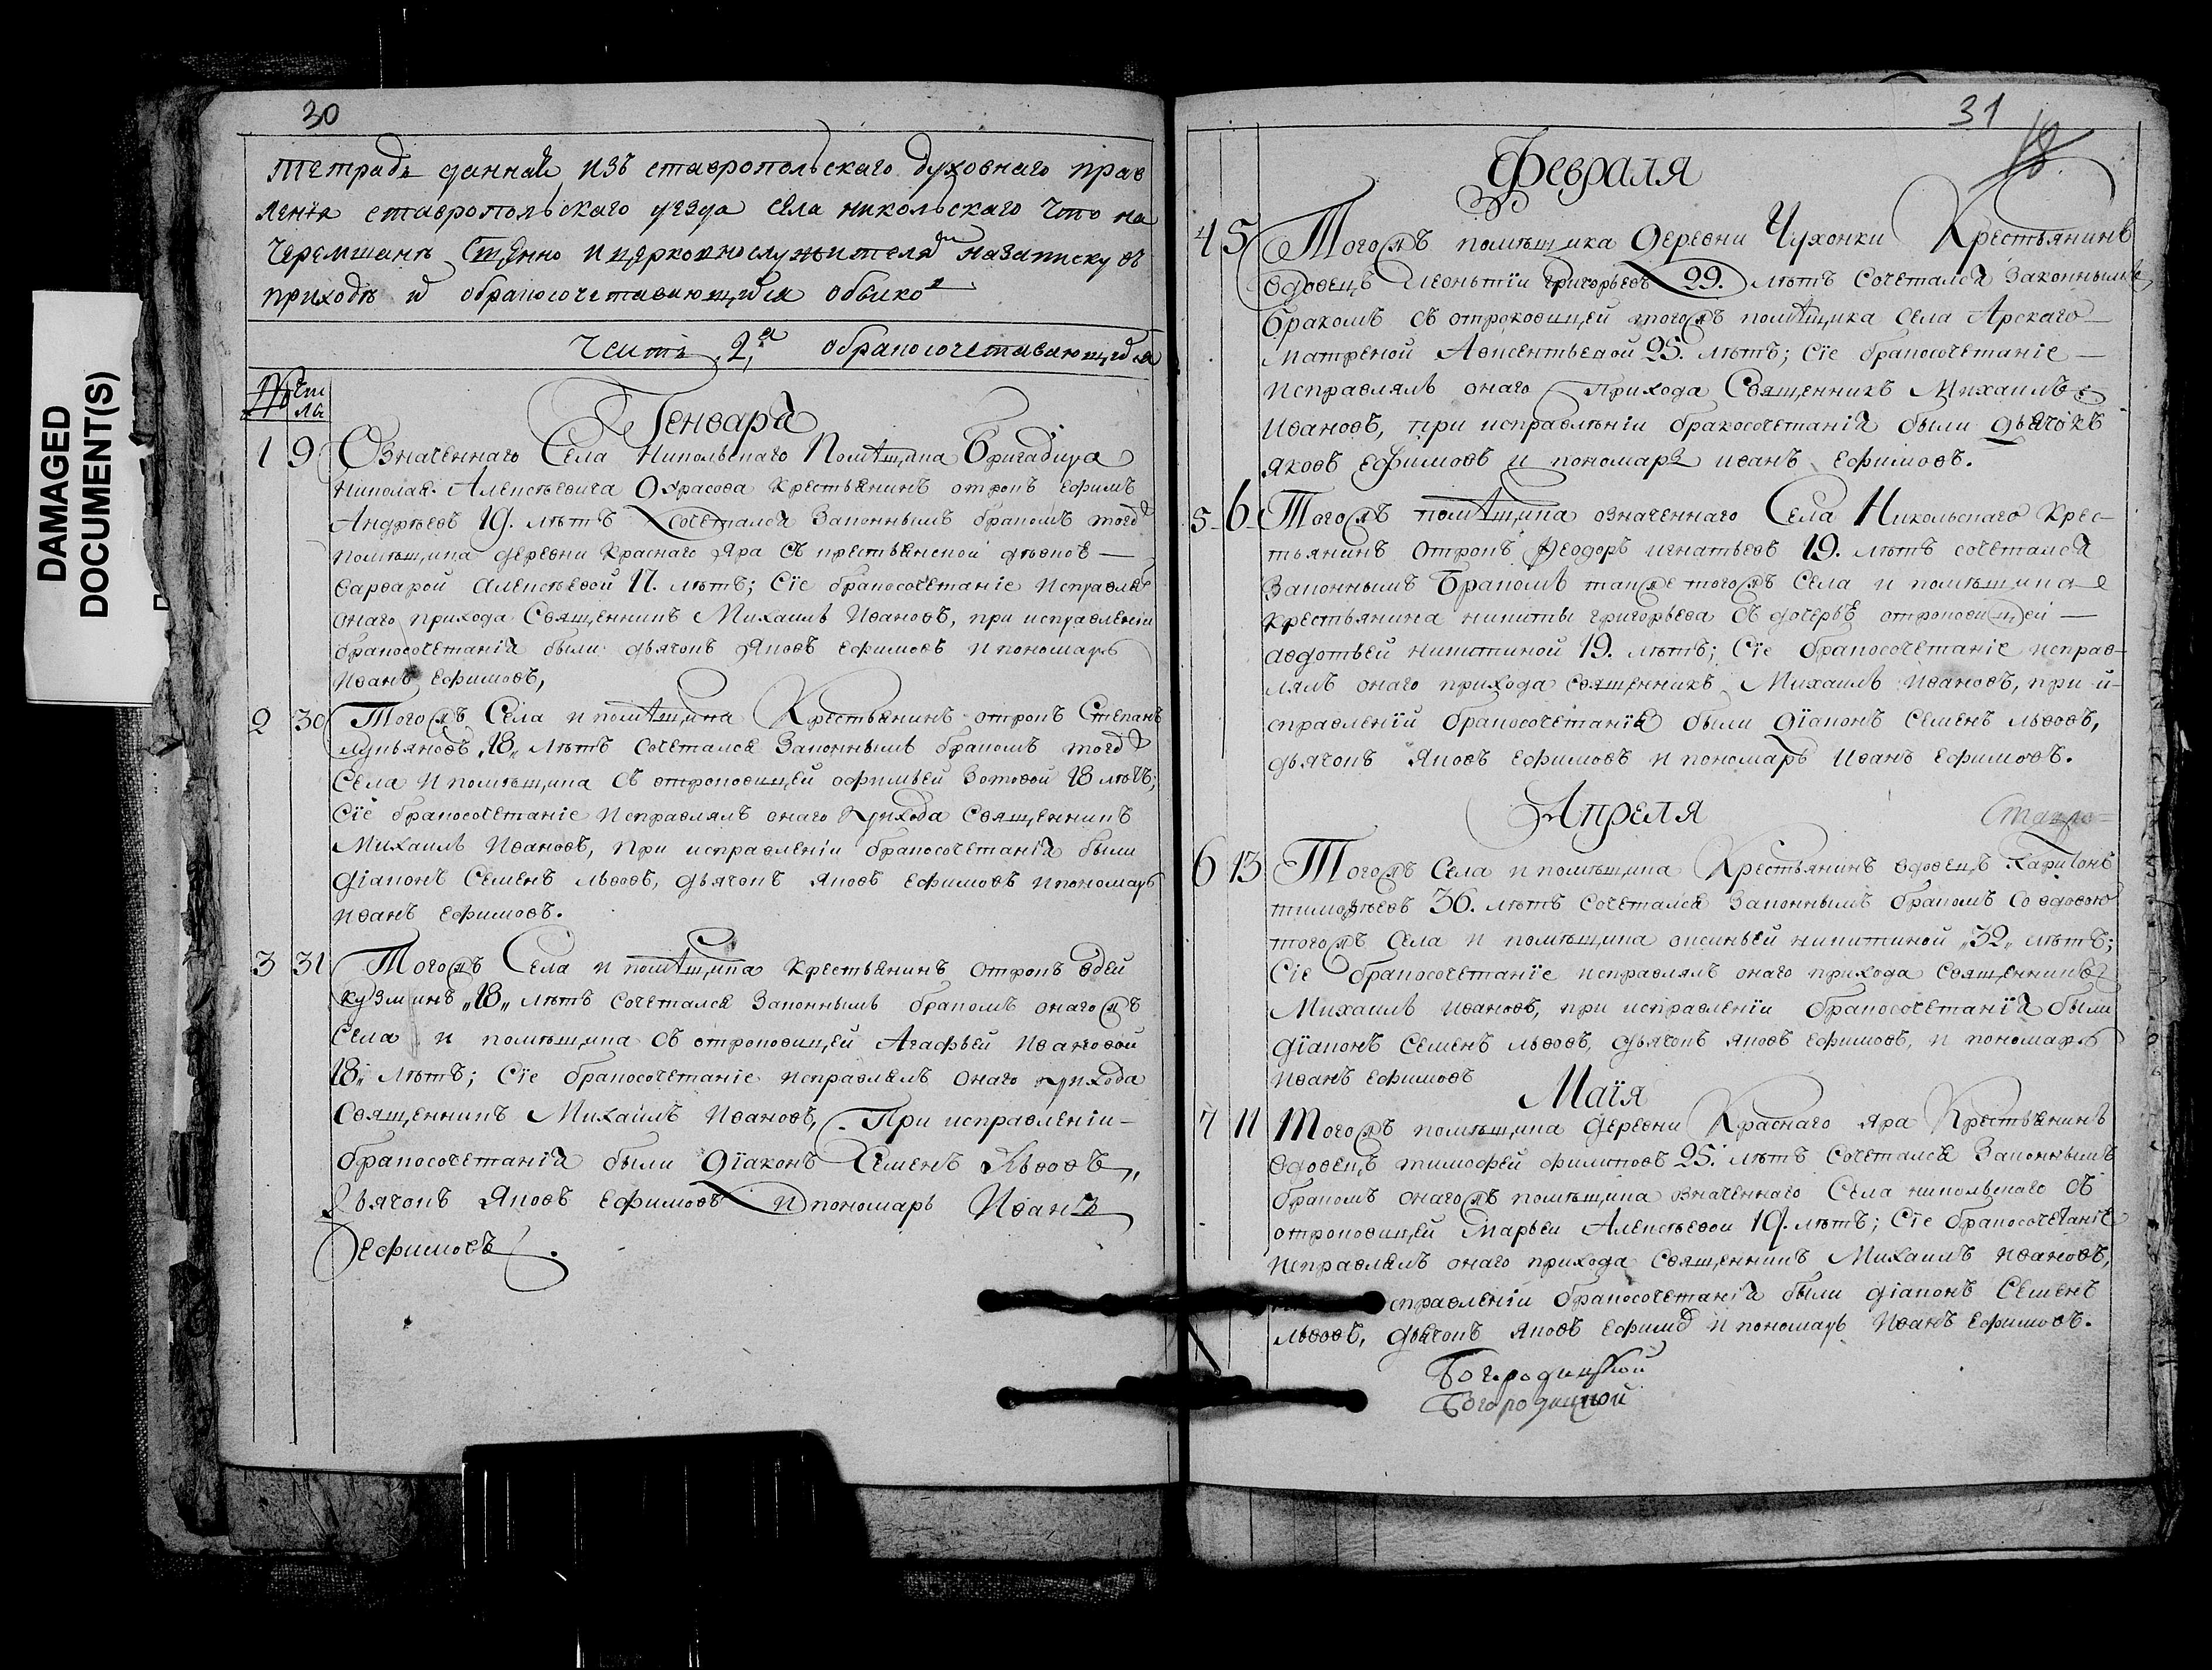 DAMAGED
DOCUMENT(S)
30
тетрадь данная изъ ставропольскаго духовнаго прав
ленія ставропольскаго уезда села никольскаго что на
Черемшанѣ Сщенно и церковнослужителямъ на записку въ
приходѣ и обракосочетавающихся
Часть 2,я обракосочетавающихся
№ Чис
ла
Генваря
1 9 Означеннаго Села Никольскаго Помѣщика Бригадира
Николая Алексѣевича Дурасова крестьянинъ отрокъ ефимъ
Андрѣевъ 19. лѣтъ сочетался законнымъ бракомъ тогожъ
помѣщика деревни Краснаго Яра съ крестьянской дѣвкой
варварой алексѣевой 17. лѣтъ; Сїе бракосочетаніе исправлялъ
онаго прихода Священникъ Михаилъ Ивановъ, при исправленіи
бракосочетаній были дьячокъ Яковъ ефимовъ и пономарь
Иванъ ефимовъ,
2 30 Тогожъ Села и помѣщика Крестьянинъ отрокъ Степанъ
лукьяновъ „18„ лѣтъ сочетался законнымъ бракомъ тогожъ
Села и помѣщика съ отроковицей офимьей Зотовой 18 лѣтъ;
Сїе бракосочетаніе исправлялъ онаго прихода Священникъ
Михаилъ Ивановъ, при исправленіи бракосочетаній были
Діаконъ Семенъ львовъ, дьячокъ яковъ ефимовъ и пономарь
Иванъ ефимовъ.
3 31 Тогожъ Села и помѣщика крестьянинъ отрокъ
кузминъ „18„ лѣтъ сочетался законнымъ бракомъ онагожъ
села и помѣщика съ отроковицей Агафьей Ивановой
18„ лѣтъ; Сїе бракосочетаніе исправлялъ онаго прихода
Священникъ Михаилъ Ивановъ, При исправленіи
бракосочетаній были Діаконъ Семенъ Львовъ„
Дьячокъ Яковъ ефимовъ и пономарь Иванъ
ефимовъ.
31
18.
Февраля
4 5 Тогожъ помѣщика деревни Чухонки Крестьянинъ
вдовецъ леоньтіи григорьевъ 22. лѣтъ сочетался законнымъ
бракомъ съ отроковицей тогожъ помѣщика села Арскаго
Матреной Авксентьевой 25. лѣтъ; Сїе бракосочетаніе
исправлялъ онаго Прихода Священникъ Михаилъ
Ивановъ, при исправлѣніи бракосочетаній были дьячокъ
яковъ ефимовъ и пономарь иванъ ефимовъ.
5 6 Тогожъ помѣщика означеннаго Села Никольскаго Крес-
тьянинъ отрокъ Феодоръ игнатьевъ 19. лѣтъ сочетался
законнымъ Бракомъ такъже тогожъ Села и помѣщика
крестьянина никиты григорьева съ дочерью отроковицей
авдотьей никитиной 19. лѣтъ; Сїе бракосочетаніе исправ-
лялъ онаго прихода священникъ Михаилъ Ивановъ, при и-
справленїй бракосочетанія были діаконъ Семенъ львовъ,
дьячокъ яковъ ефимовъ и пономарь Иванъ ефимовъ.
Апреля
6 13 Тогожъ Села и помѣщика Крестьянинъ вдовецъ харитонъ
тимофѣевъ 36. лѣтъ сочетался законнымъ бракомъ со вдовою
тогожъ села и помѣщика аксиньей никитиной „32„ лѣтъ;
Сїе бракосочетанїе исправлялъ онаго прихода священникъ
Михаилъ Ивановъ, при исправленїи бракосочетанїй были
діаконъ Семенъ львовъ, дьячокъ яковъ ефимовъ, и пономарь
Иванъ ефимовъ
Маїя
7 11 Тогожъ помѣщика деревни Краснаго яра Крестьянинъ
вдовецъ тимофей филиповъ 25. лѣтъ сочетался законнымъ
бракомъ онагожъ помѣщика значеннаго Села никольскаго съ
отроковицей марьеи Алексѣевои 19. лѣтъ; Сїе бракосочетаніе
исправлялъ онаго прихода священникъ Михаилъ Ивановъ,
справленіи бракосочетаній были діаконъ Семенъ
львовъ, дьячокъ яковъ ефимов и пономарь Иванъ ефимовъ.
Богородицкой
Богородицкой